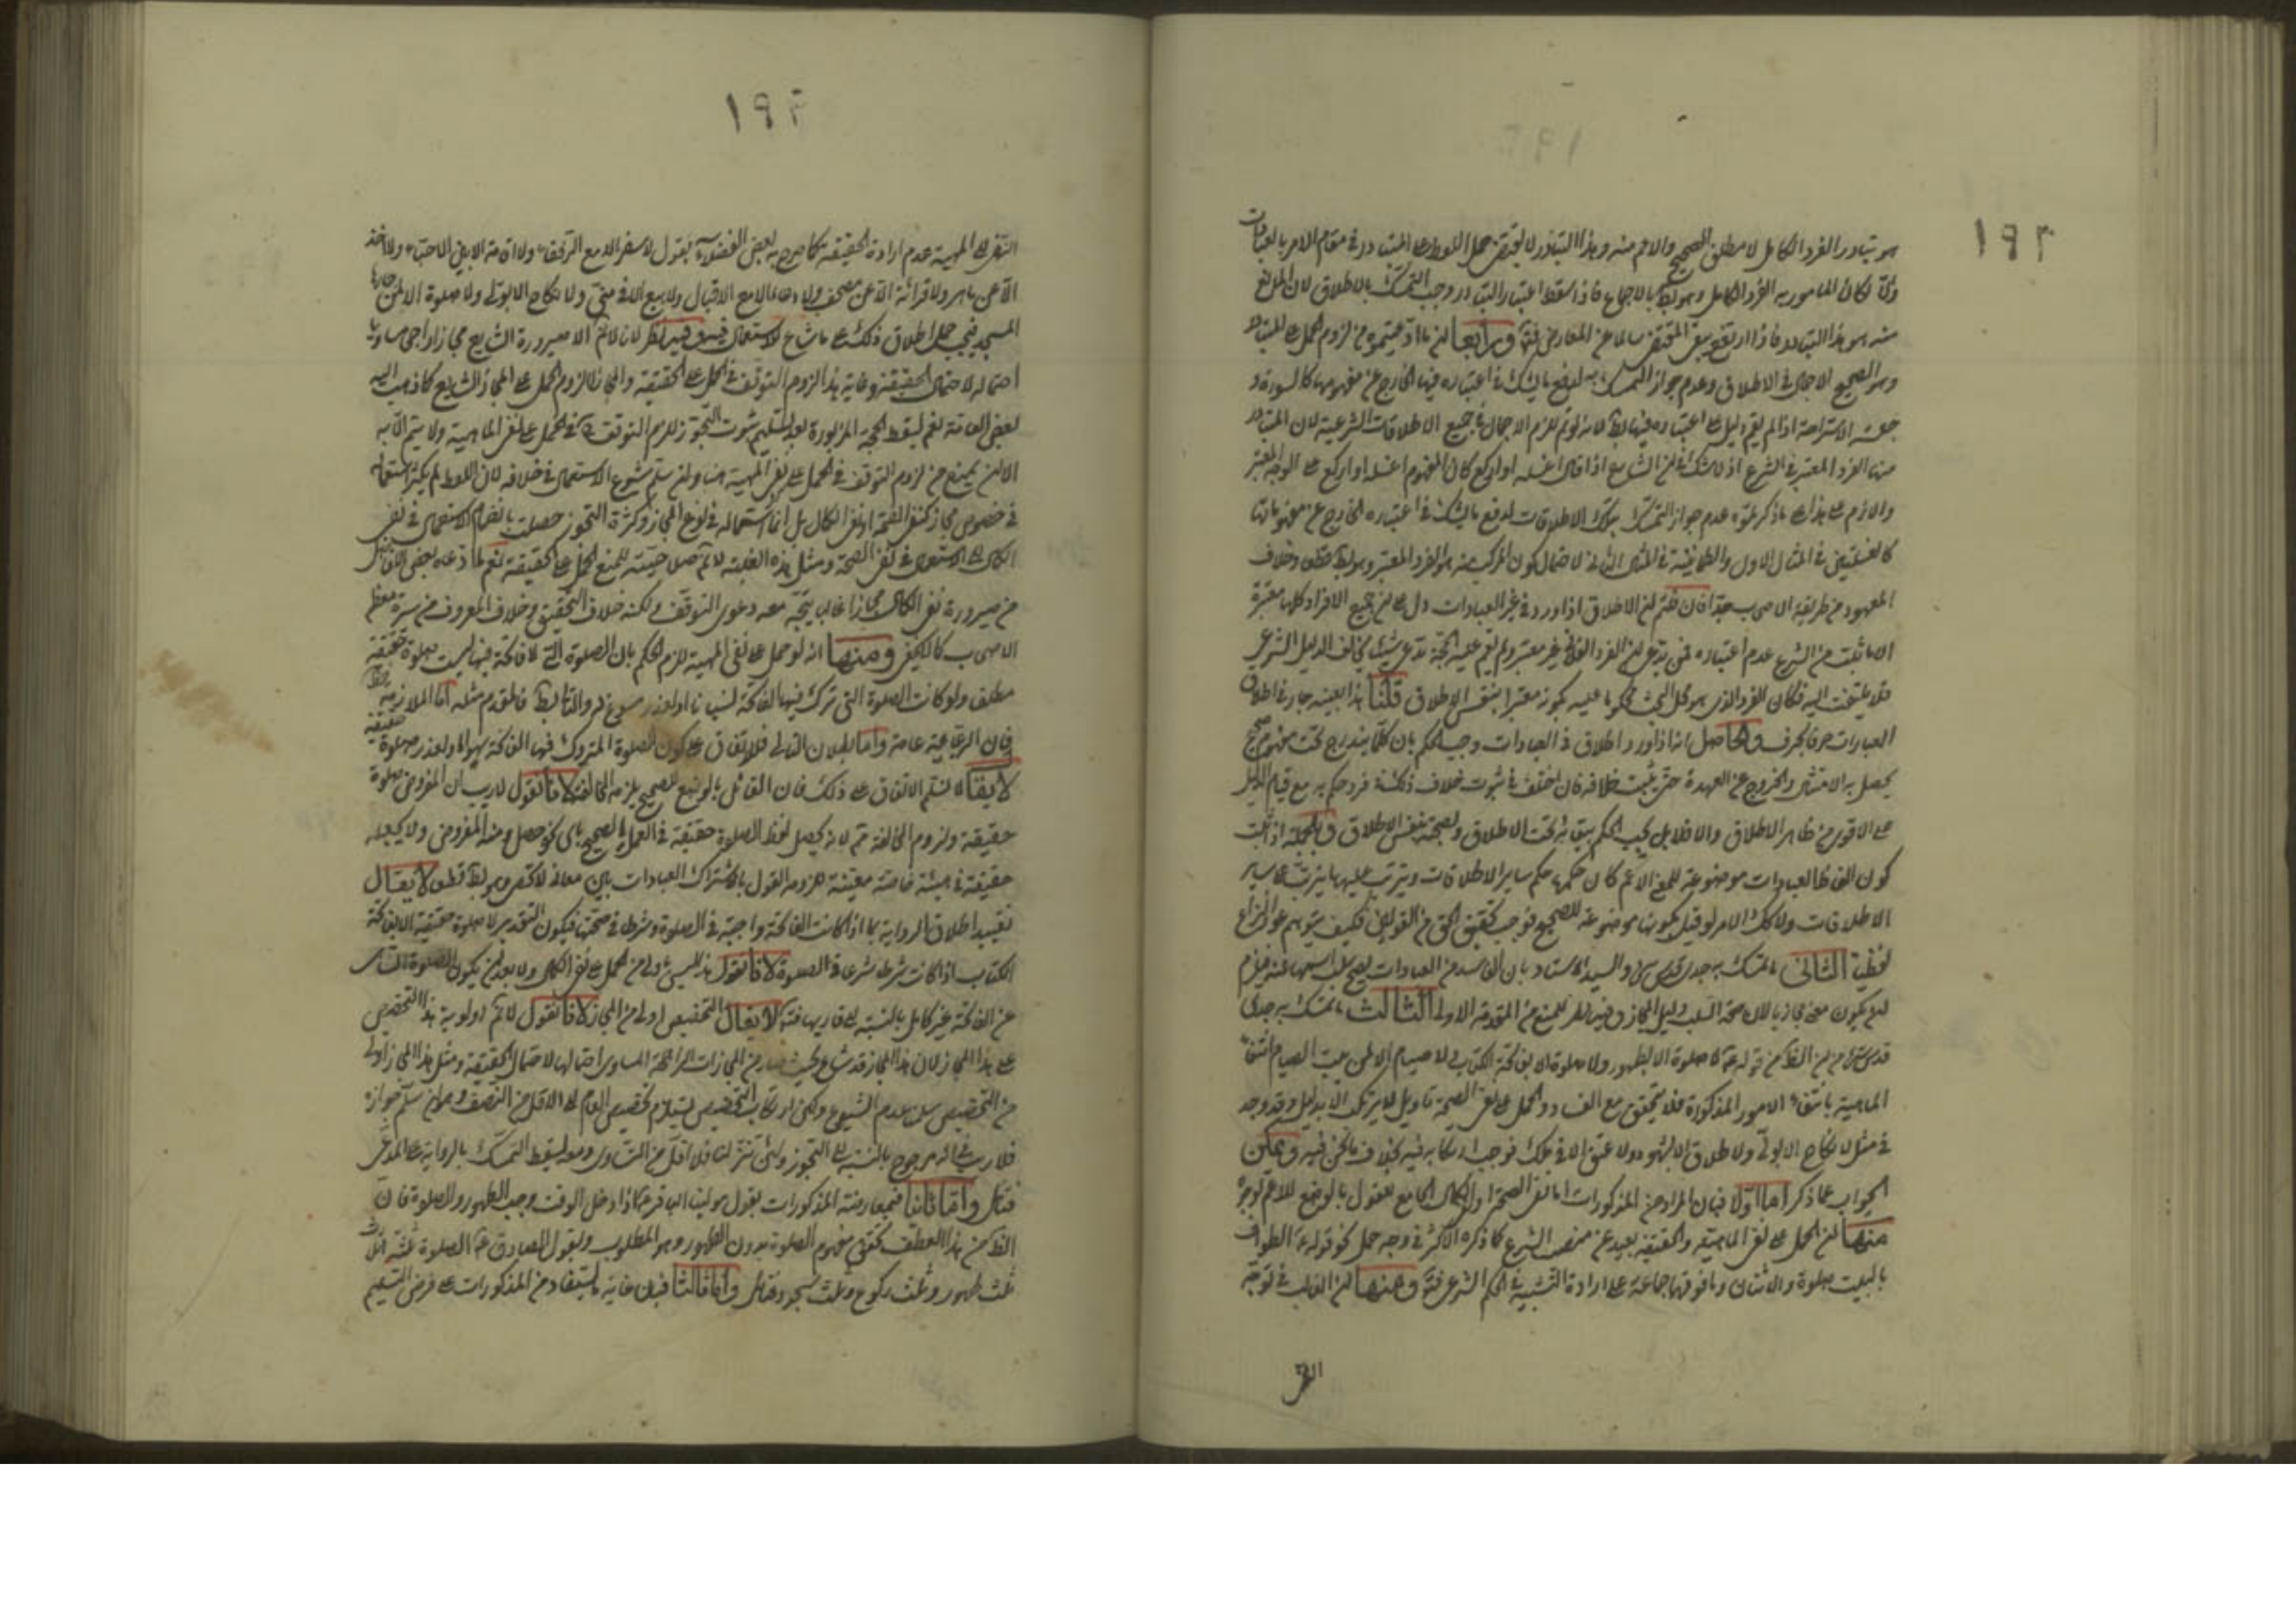 ١٩٢
هو تبادر الفرد الكامل لا مطلق الصحيح والاعم منه وهذا التبادر لا يقتضى حمل اللفظ على المتبادر فى مقام الامر بالعبادات
والا لكان المامور به الفرد الكامل وهو بط بالاجماع فاذا سقط اعتبار التبادر وجب التمسك بالاطلاق لان المانع
منه هو هذا التبادر فاذا ارتفع بقى المقتضى سالما عن المعارض فت ورابعا ان ما ادعيتموه من لزوم الحمل على المتبادر
وهو الصحيح الاجمال فى الاطلاق وعدم جواز التمسك به لدفع ما يشك فى اعتباره فيها الخارج عن مفهومها كالسورة و
جلسة الاستراحة اذا لم يقم دليل على اعتباره فيها بط لانه لو تم للزم الاجمال فى جميع الاطلاقات الشرعية لان المتبادر
منها الفرد المعتبر فى الشرع اذ لا شك فى ان الشارع اذا قال اغسله او اركع كان المفهوم اغسله او اركع على الوجه المعتبر
واللازم على هذا على ما ذكرتموه عدم جواز التمسك بتلك الاطلاقات لدفع ما يشك فى اعتباره الخارج عن مفهوماتها
كالغسلتين فى المثال الاول والطمانينة فى المثال الثانى لاحتمال كون المركب منه هو الفرد المعتبر وهو بط قطعا وخلاف
المعهود من طريقة الاصحاب جدا فان قلتم ان الاطلاق اذا ورد فى غير العبادات دل على ان جميع الافراد كلها معتبرة
الا ما ثبت من الشرع عدم اعتباره فمن يدعى ان الفرد الفلانى غير معتبر ولم يقم عليه الحجة يدعى شيئا يخالف الدليل الشرعى
فلا يلتفت اليه فكان الفرد الذى هو محل البحث محكوما عليه بكونه معتبرا بنفس الاطلاق قلنا هذا بعينه جار فى اطلاق
العبارات حرفا بحرف والحاصل انه اذا ورد اطلاق فى العبادات وجب الحكم بان كلما يندرج تحت مفهوم صحيح
يحصل به الامتثال والخروج عن العهدة حتى يثبت خلافه فان اختلف فى ثبوت خلاف ذلك فى فرد حكم به مع قيام الدليل
على الاقوى من ظاهر الاطلاق والا فلا بل يجب الحكم ببقائه تحت الاطلاق ولصحته بنفس الاطلاق وبالجملة اذا ثبت
كون الفاظ العبادات موضوعة للمعنى الاعم كان حكمها حكم ساير الاطلاقات ويترتب عليها ما يترتب على ساير
الاطلاقات ولا كك الامر لو قيل بكونها موضوعة للصحيح فوجب تحقيق الحق من القولين فكيف يتوهم عود النزاع
لفظيا الثانى ما تمسك به جدى قدس سره والسيد الاستاد بان الفاسد من العبادات يصح سلب اسمها عنه فيلزم
ان يكون معنى مجازيا لان صحة السلب دليل المجاز وفيه نظر للمنع من المقدمة الاولى الثالث ما تمسك به جدى
قدس سره من ان الظ من قوله ع لا صلوة الا بطهور ولا صلوة الا بفاتحة الكتاب لا صيام الا لمن يبيت الصيام انتفاء
الماهية بانتفاء الامور المذكورة فلا يتحقق مع الفساد والحمل على نفى الصحة تاويل لا يرتكب الا بدليل وقد وجد
فى مثل لا نكاح الا بولى ولا طلاق الا بشهود ولا عتق الا فى ملك فوجب ارتكابه فيه بخلاف ما نحن فيه ويمكن
الجواب عما ذكر اما اولا فبان المراد من المذكورات اما نفى الصحة او الكمال الجامع للقول بالوضع للاعم لوجوه
منها ان الحمل على نفى الماهية والحقيقة بعيد عن منصب الشرع كما ذكره الاكثر فى وجه حمل نحو قوله ع الطواف
بالبيت صلوة والاثنان وما فوقهما جماعة على ارادة التشبيه فى الحكم الشرعى فت ومنها ان الغالب فى توجه
النفى
١٩٢
النفى الى المهية عدم ارادة الحقيقة كما صرح به بعض الفضلاء بقول لا سفر الا مع الرفقاء ولا اقامة الا بين الاحباء ولا اخذ
الا عن ماهر ولا قرائة الا عن مصحف ولا دعاء الا مع الاقبال ولا بيع الا فى ولا نكاح الا بولى ولا صلوة الا لمن جاره
المسجد فيجب حمل اطلاق ذلك على ما شاع الاستعمال فيه وفيه نظر لانا لا نم الا صيرورة الشايع مجازا راجحا مساويا
احتماله لاحتمال الحقيقة وغاية هذا لزوم التوقف فى الحمل على الحقيقة والمجاز لا لزوم الحمل على المجاز الشايع كما ذهب اليه
بعض العامة نعم يسقط الحجة المزبورة بعد تسليم ثبوت التجوز للزوم التوقف فى الحمل على نفى الماهية ولا يتم الا به
الا ان يمنع من لزوم التوقف فى الحمل على نفى المهية هنا وان سلم شيوع الاستعمال فى خلافه لان اللفظ لم يكثر استعماله
فى خصوص مجاز كنفى الصحة او نفى الكمال بل انما استعماله فى نوع المجاز وكثرة التجوز حصلت بانضمام الاستعمال فى نفى
الكمال الى الاستعمال فى نفى الصحة ومثل هذه الغلبة لا تم صلاحيته للمنع الحمل على الحقيقة نعم ما ادعاه بعض الافاضل
من صيرورة نفى الكمال مجازا غالبا يتجه معه دعوى التوقف ولكنه خلاف التحقيق وخلاف المعروف من سيرة معظم
الاصحاب كما لا يخفى ومنها انه لو حمل على نفى المهية للزم الحكم بان الصلوة التى لا فاتحة فيها ليست صلوة حقيقة
مطلقا ولو كانت الصلوة التى ترك فيها الفاتحة لنسيان او لعذر مسوغ له والتالى بط فالمقدم مثله اما الملازمة
فلان الرواية عامة واما بطلان التالى فللاتفاق على كون الصلوة المتروك فيها الفاتحة سهوا او لعذر صلوة حقيقة
لا يقال لا نسلم الاتفاق على ذلك فان القائل بالوضع للصحيح يلزمه المخالفة لانا نقول لا ريب ان المفروض صلوة
حقيقة ولزوم المخالفة ثم لانه يحصل لفظ الصلوة حقيقة فى العمل الصحيح باى نحو حصل ومنه المفروض ولا يجعله
حقيقة فى هيئة خاصة معينة للزومه القول باشتراك العبادات بين معان لا تحصى وهو بط قطعا لا يقال
تقييد اطلاق الرواية بما اذا كانت الفاتحة واجبة فى الصلوة وشرطا فى صحتها فيكون التقدير لا صلوة حقيقة الا بفاتحة
الكتاب اذا كانت شرطا شرعا فى الصلوة لانا نقول هذا ليس باولى من الحمل على نفى الكمال ولا بعد ان يكون الصلوة الناسى
عن الفاتحة غير كامل بالنسبة الى قاريها فت لا يقال التخصيص اولى من المجاز لانا نقول لا نم اولوية هذا التخصيص
على هذا المجاز لان هذا المجاز قد شاع بحيث صار من المجازات الراجحة المساوى احتمالها لاحتمال الحقيقة ومثل هذا المجاز اولى
من التخصيص سلمنا عدم الشيوع ولكن ارتكاب التخصيص يستلزم تخصيص العام الى الاقل من النصف وهو ان سلم جوازه
فلا ريب فى انه مرجوح بالنسبة الى التجوز ولئن تنزلنا فلا اقل من التساوى ومعه يسقط التمسك بالرواية على المدعى
فتامل واما ثانيا فبمعارضة المذكورات بقول مولينا الباقر ع اذا دخل الوقت وجب الطهور والصلوة فان
الظ من هذا العطف تحقق مفهوم الصلوة بدون الطهور وهو المطلوب وبقول الصادق ع الصلوة ثلثة اثلاث
ثلث طهور وثلث ركوع وثلث سجود فتامل واما ثالثا فبان غاية ما يستفاد من المذكورات على فرض التسليم